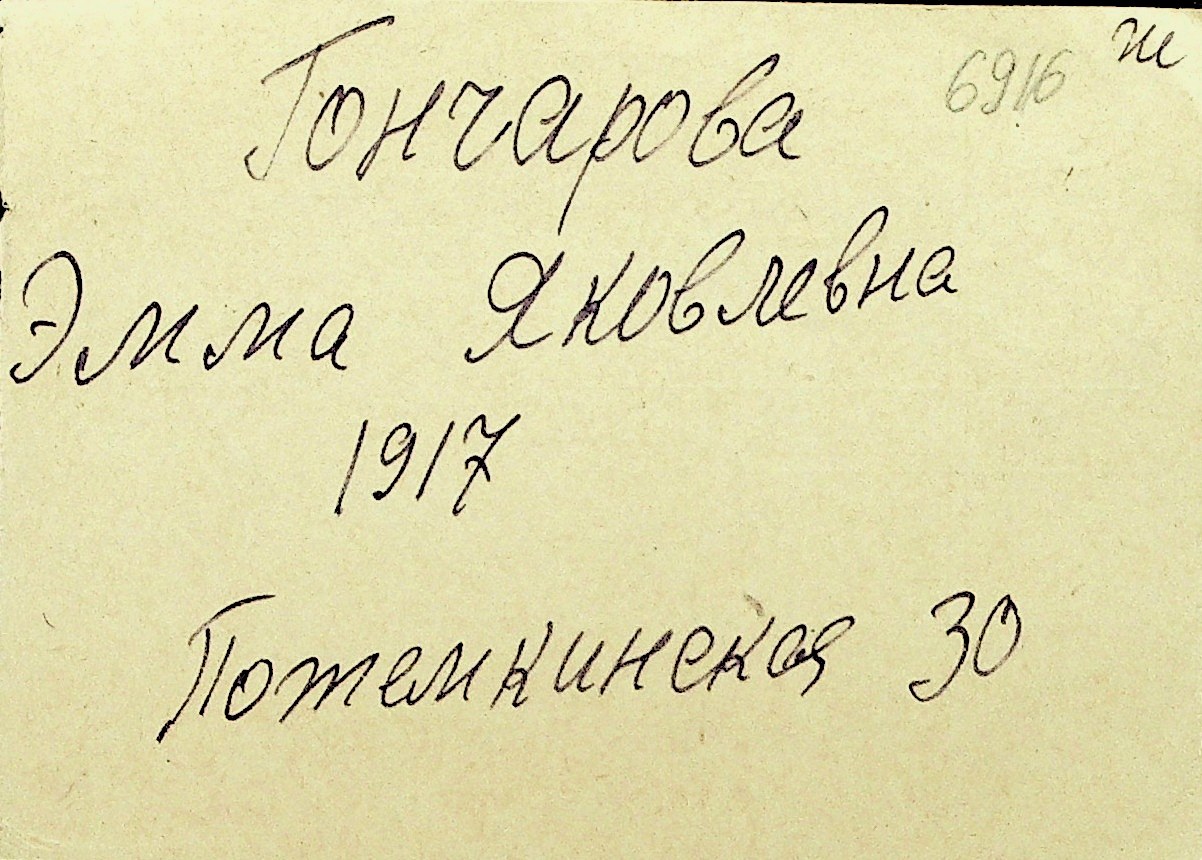 6916 ж
Гончарова
Эмма Яковлевна
1917
Потемкинская 30